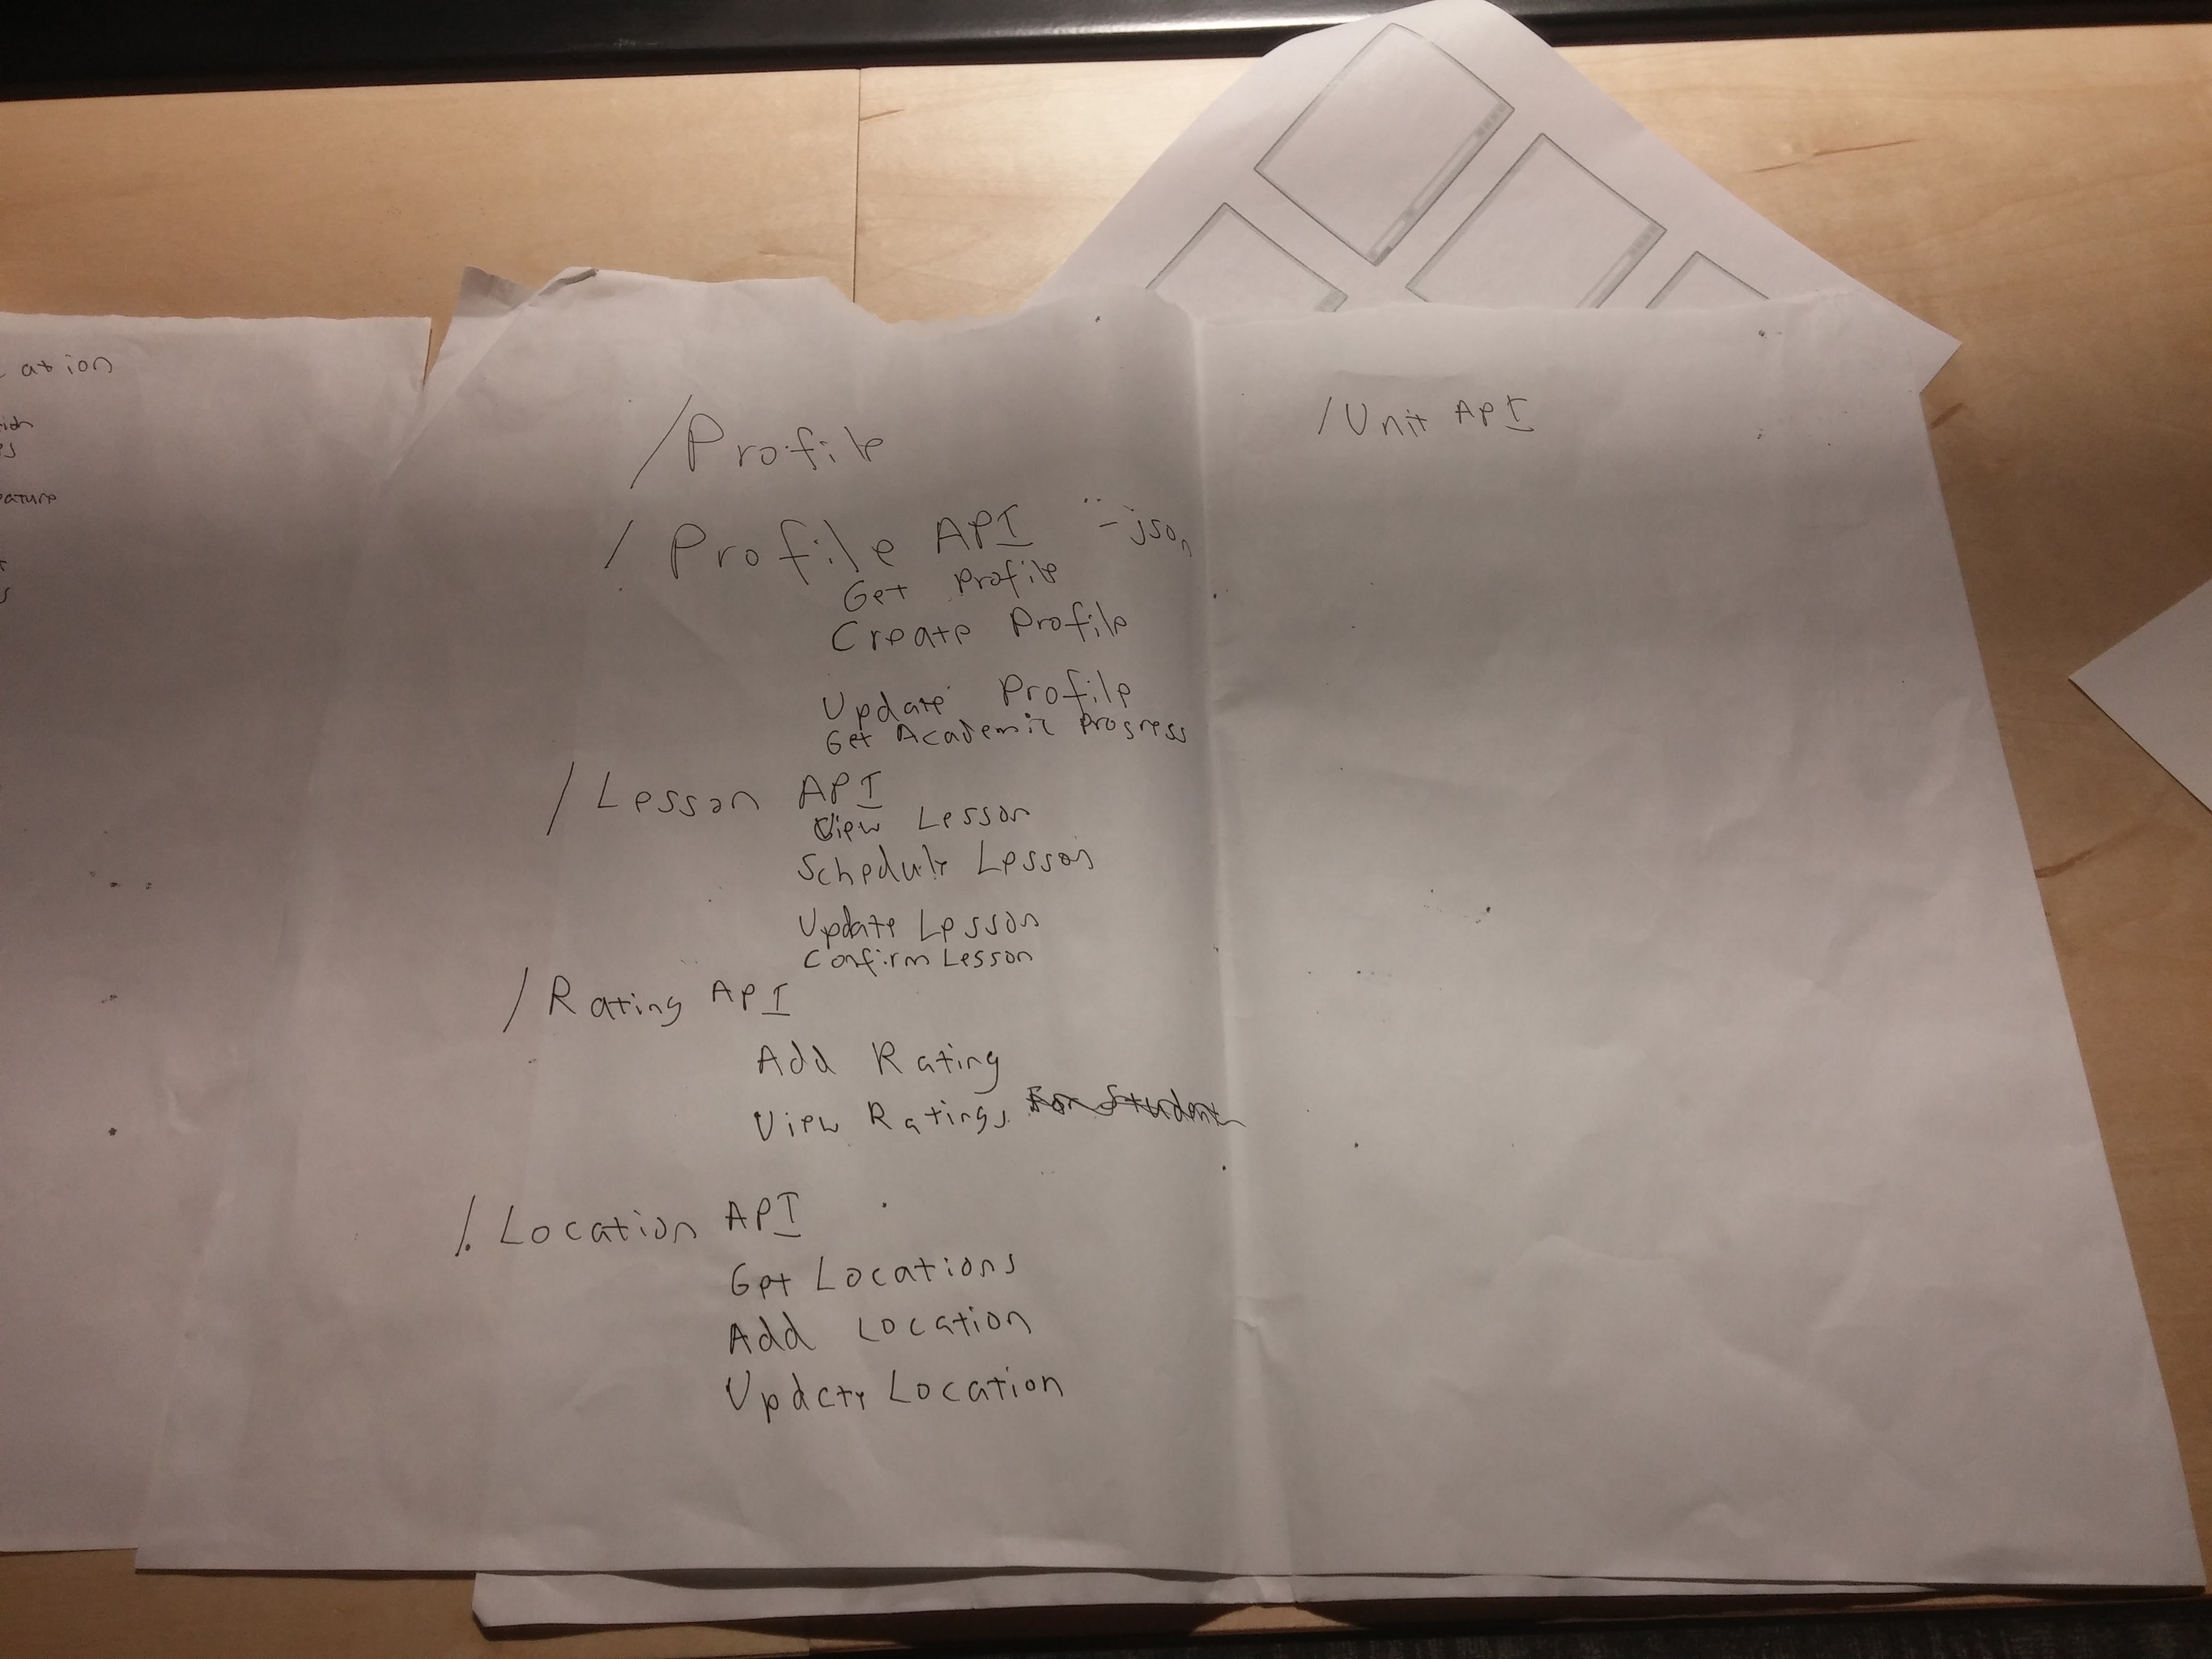 ation
eature
/Profile
/Profile API - json
Get Profile
Create Profile
Update Profile
Get Academic Progress
/Lesson API
View Lesson
Schedule Lesson
Update Lesson
Confirm Lesson
/Rating API
Add Rating
View Ratings For Student
/. Location API
Get Locations
Add Location
Update Location
/Unit API